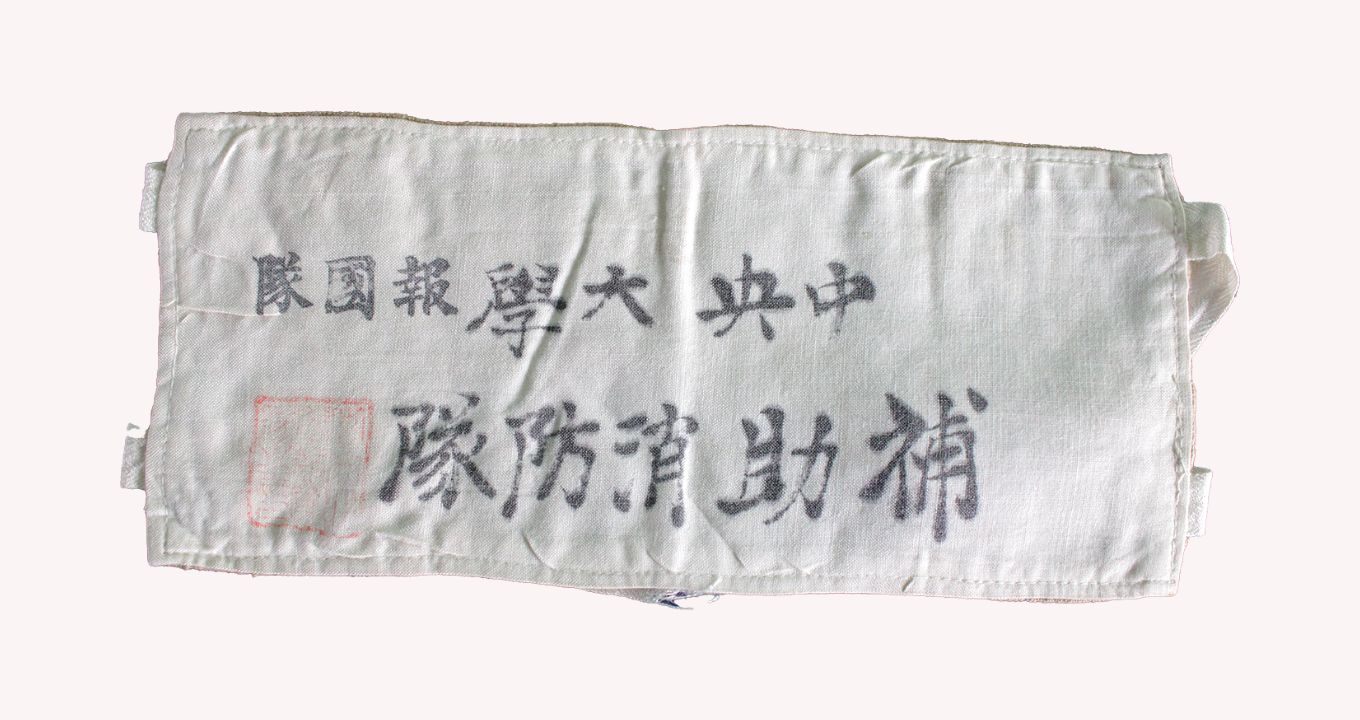 中央大學報國隊
補助消防隊